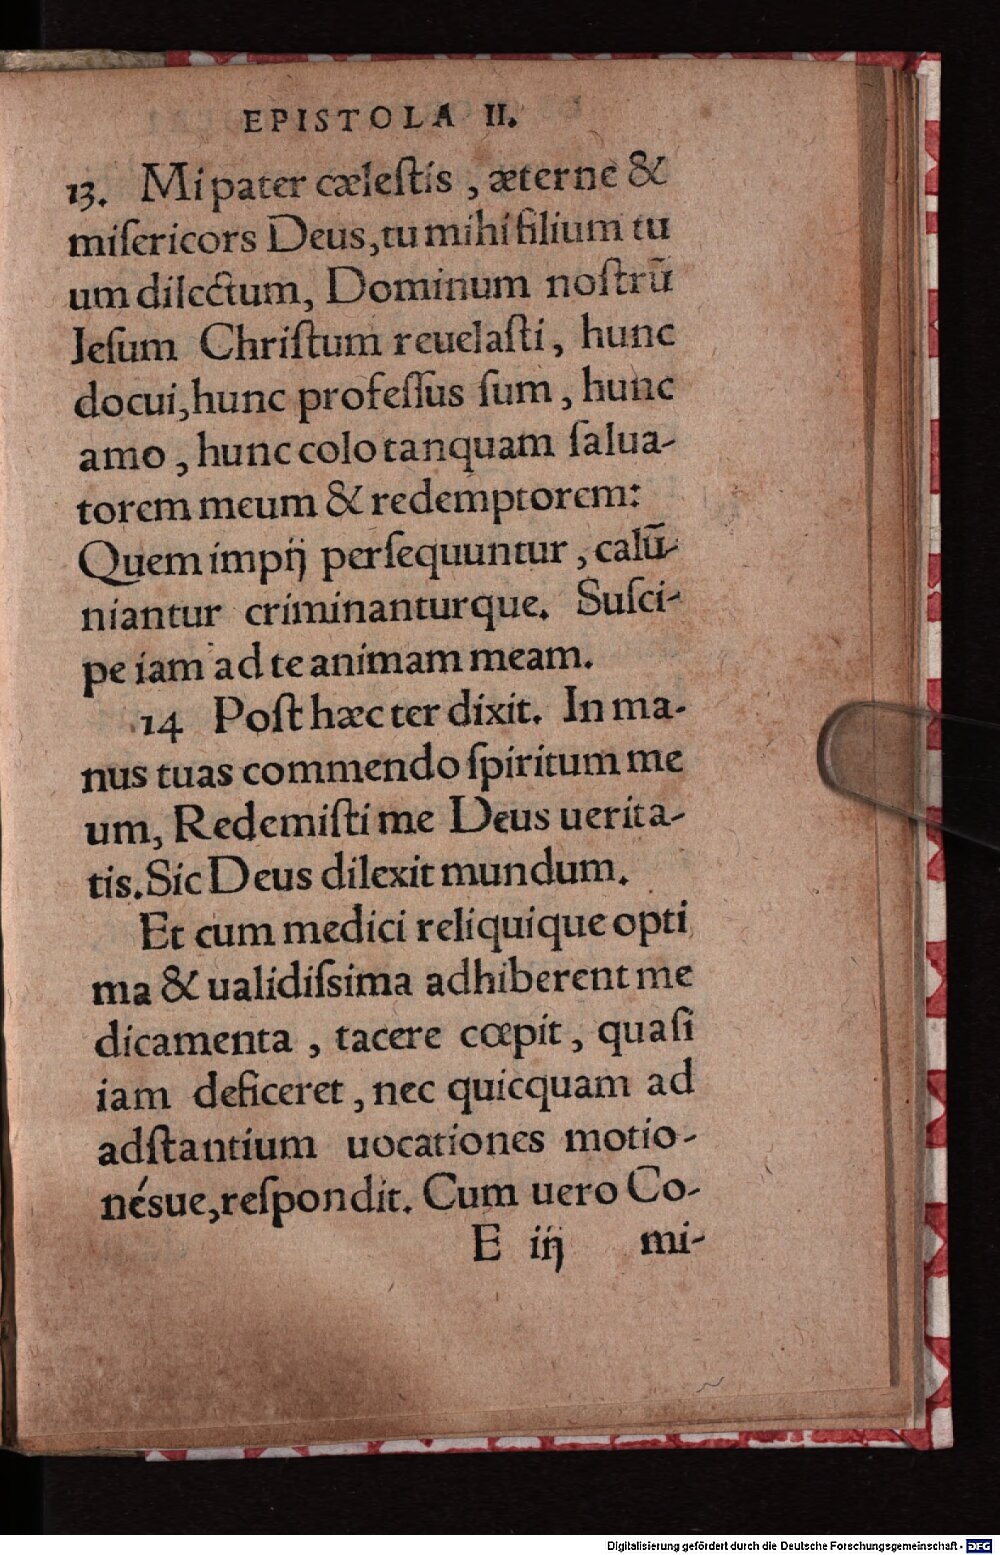 EPISTOLA II.
13. Mi pater cælestis, æterne &
miſericors Deus, tu mihi filium tu
um dilectum, Dominum noſtrū
Ieſum Chriſtum reuelaſti, hunc
docui, hunc profeſſus ſum, hunc
amo, hunc colo tanquam ſalua-
torem meum & redemptorem:
Quem impij perſequuntur, calū-
niantur criminanturque. Suſci-
pe iam ad te animam meam.
14 Poſt hæc ter dixit. In ma-
nus tuas commendo ſpiritum me
um, Redemiſti me Deus uerita-
tis. Sic Deus dilexit mundum.
Et cum medici reliquique opti
ma & ualidiſsima adhiberent me
dicamenta, tacere cœpit, quaſi
iam deficeret, nec quicquam ad
adſtantium uocationes motio-
néſue, reſpondit. Cum uero Co-
E iij mi-
Digitalisierung gefördert durch die Deutsche Forschungsgemeinschaft - DFG